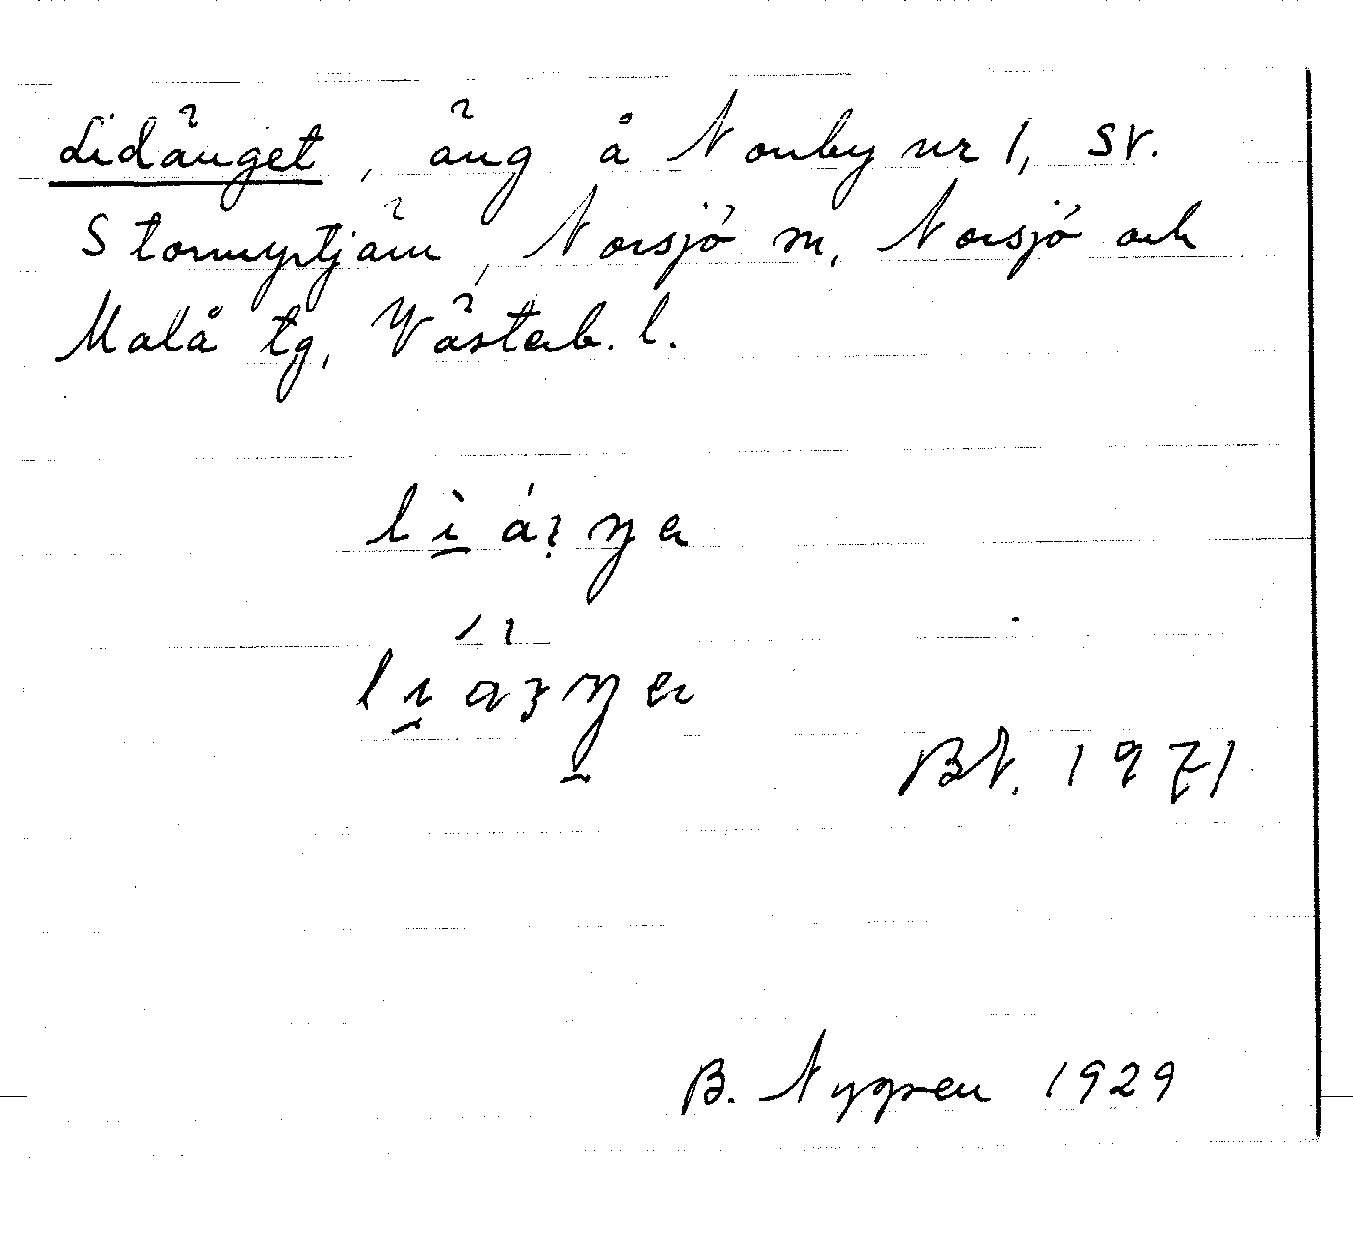 Lidänget, äng å Norrby nr 1, SV.
Stormyrtjärn, Norsjö sn, Norsjö och
Malå tg, Västerb. l.
BN. 1971
B. Nygren 1929